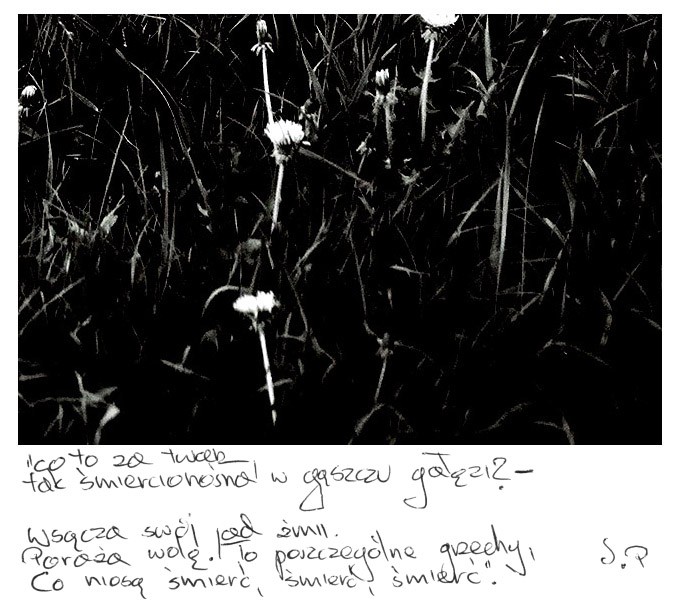 "co to za twarz
tak śmiercionośna w gąszczu gałęzi? –
Wsącza swój jad żmii.
Poraża wolę. To poszczególne grzechy,
Co niosą śmierć, śmierć, śmierć".
S.P